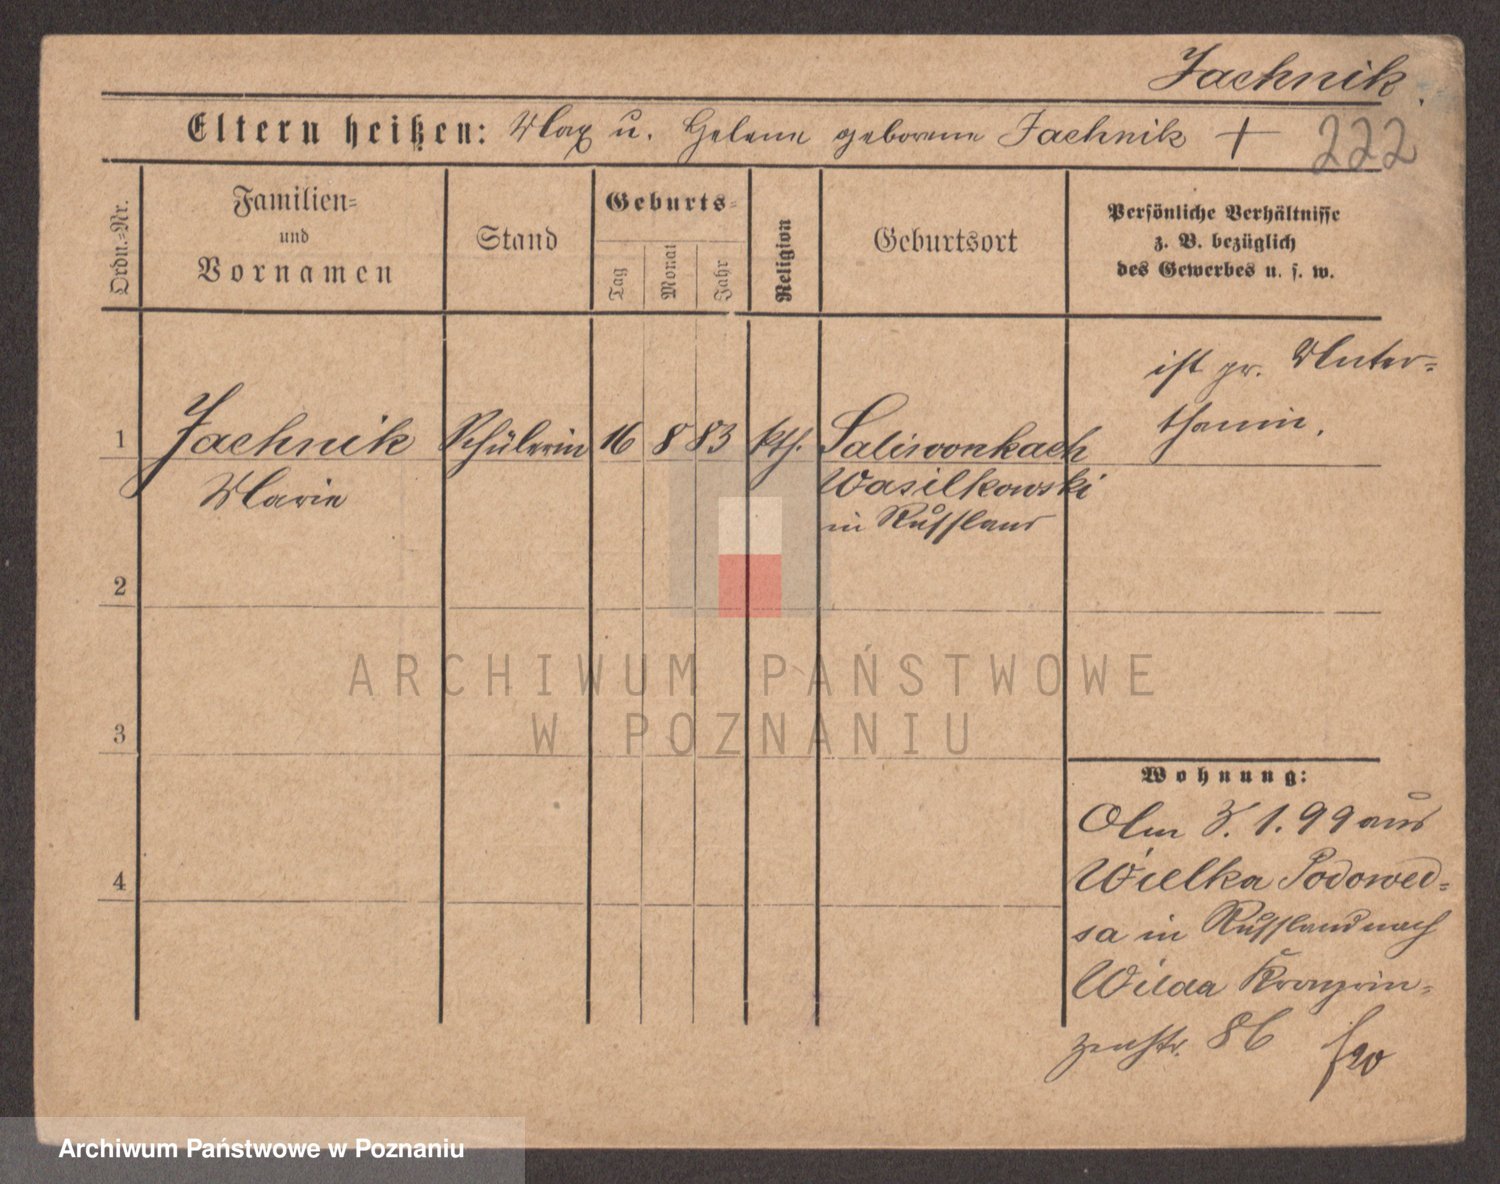 Jachnik.
Eltern heißen: Max u. Helene geborene Jachnik +
222
Ordn.-Nr.
Familien-
und
Vornamen
Stand
Geburts-
Tag
Monat
Jahr
Religion
Geburtsort
Persönliche Verhältnisse
z. B. bezüglich
des Gewerbes u. s. w.
1
Jachnik
Marie
Schülerin
16
8
83
kth.
Saliwonkach
Wasilkowski
in Russland
ist pr. Unter-
thanin.
2
3
4
Wohnung:
Am 3. 1. 99 aus
Wielka
sa in Russland nach
Wilda Kronprin-
zenstr. 86
ARCHIWUM PAŃSTWOWE
W POZNANIU
Archiwum Państwowe w Poznaniu